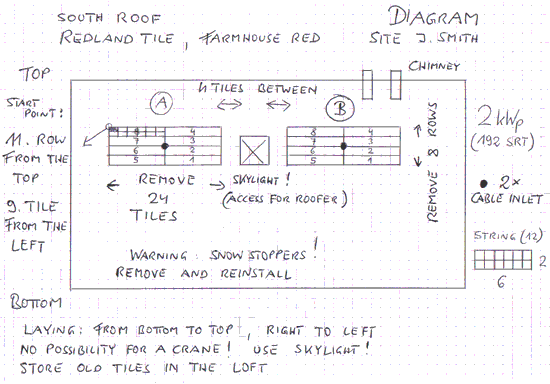 SOUTH ROOF
REDLAND TILE, FARMHOUSE RED
DIAGRAM
SITE J. SMITH
TOP
CHIMNEY
4 TILES BETWEEN
START
POINT!
A
B
11. ROW
FROM THE
TOP
9. TILE
FROM THE
LEFT
8 4
7 3
6 2
5 1
8 4
7 3
6 2
5 1
REMOVE 8 ROWS
2 kWp
(192 SRT)
2x
CABLE INLET
REMOVE
24
TILES
SKYLIGHT!
(ACCESS FOR ROOFER)
STRING (12)
2
6
WARNING: SNOW STOPPERS!
REMOVE AND REINSTALL
BOTTOM
LAYING: FROM BOTTOM TO TOP, RIGHT TO LEFT
NO POSSIBILITY FOR A CRANE! USE SKYLIGHT!
STORE OLD TILES IN THE LOFT